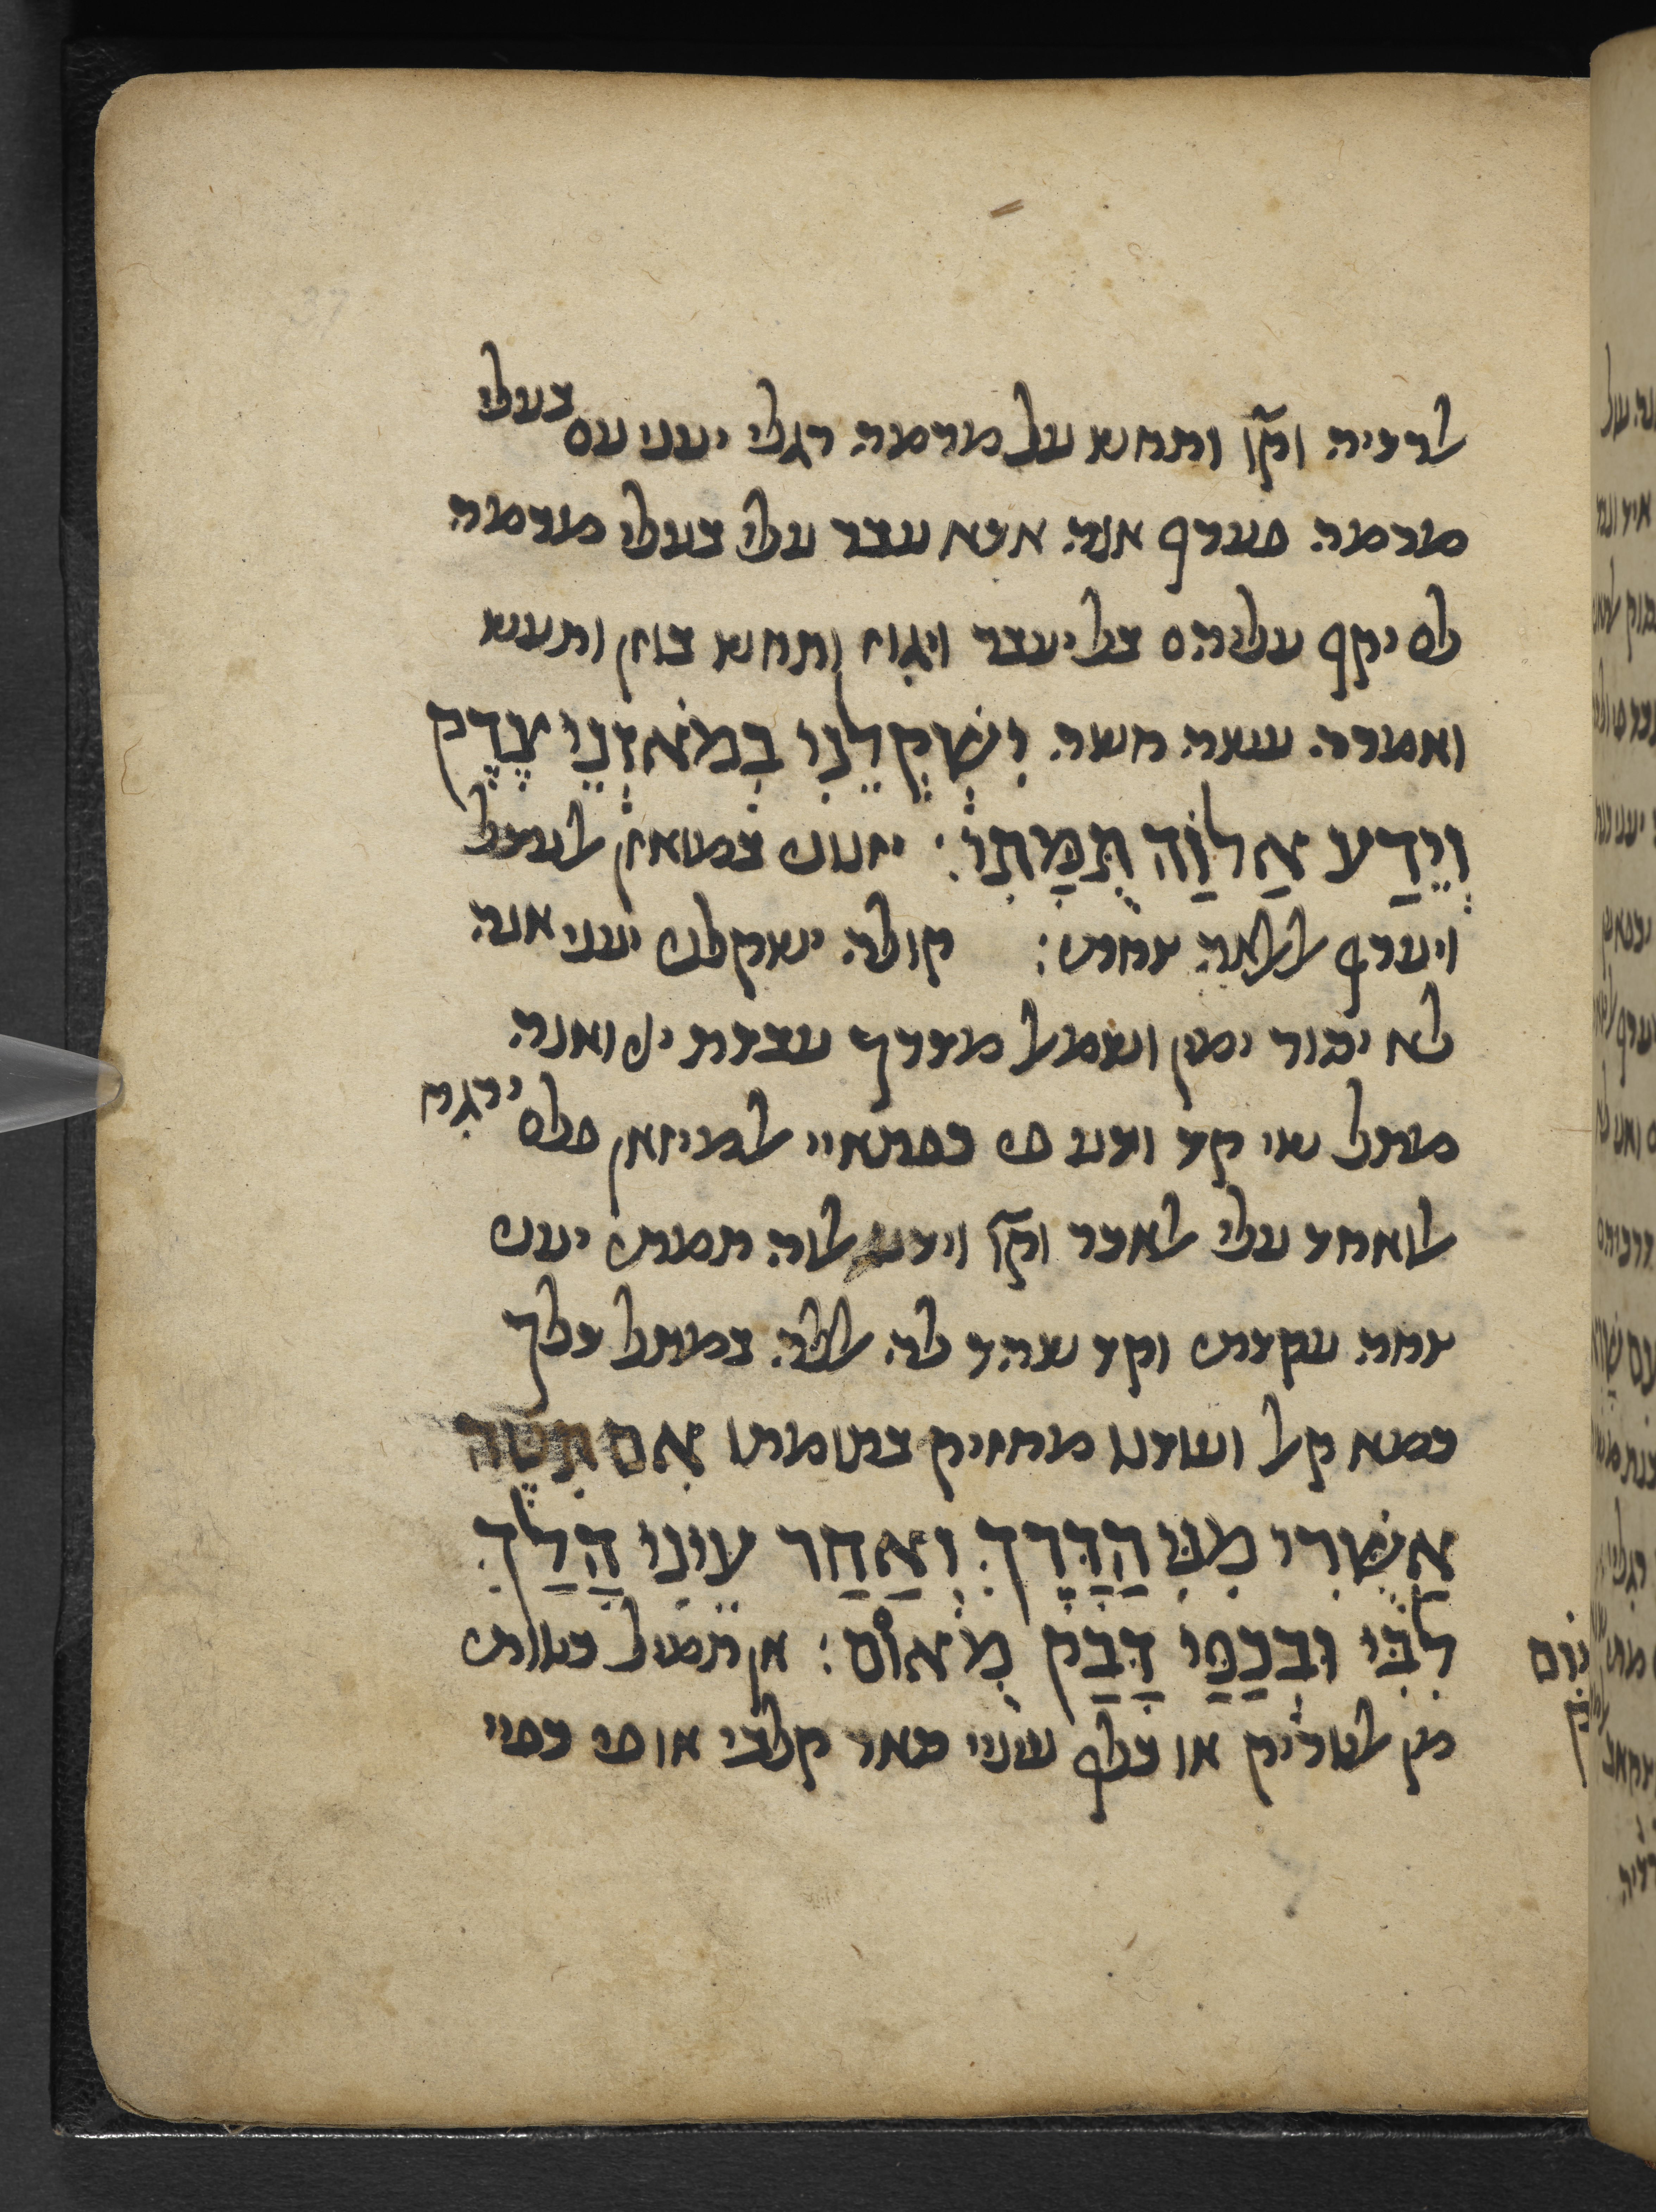 אלרדיה וקו ותחש על מרמה רגלי יעני עם בעלי
מרמה פערף אנה אדא עבר עלי בעלי מרמה
לם יקף עליהם בל יעבר ויגוז ותחש בוזן ותעש
ואמרה עשה חשה יִשְׁקְלֵנִי בְמֹאזְנֵי צֶדֶק
וְיֵדַע אֱלוֹהַּ תֻּמָּתִי׃ יזנני אלעדל
ויערף אללאה צחתי׃ קולה ישקלני יעני אנה
לא ימין ושמאל מדרך עבדת ואנה
מתל שי קד וצע פי כפתאיי אלמיזאן פלם ירגח
אלואחד עלי אלאכר וקו וידע אלוה תמתי יעני
צחה עקדתי וקד שהד לה אללה במתל דלך
כמא קאל ועודנו מחזיק בתומתו אִם תִּטֶּה
אַשֻּׁרִי מִנִּי הַדָּרֶךְ וְאַחַר עֵינַי הָלַךְ
לִבִּי וּבְכַפַּי דָּבַק מְאוּם׃ אן תמיל כטותי
מן אלטריק או כלף עיני סאר קלבי או פי כפיי